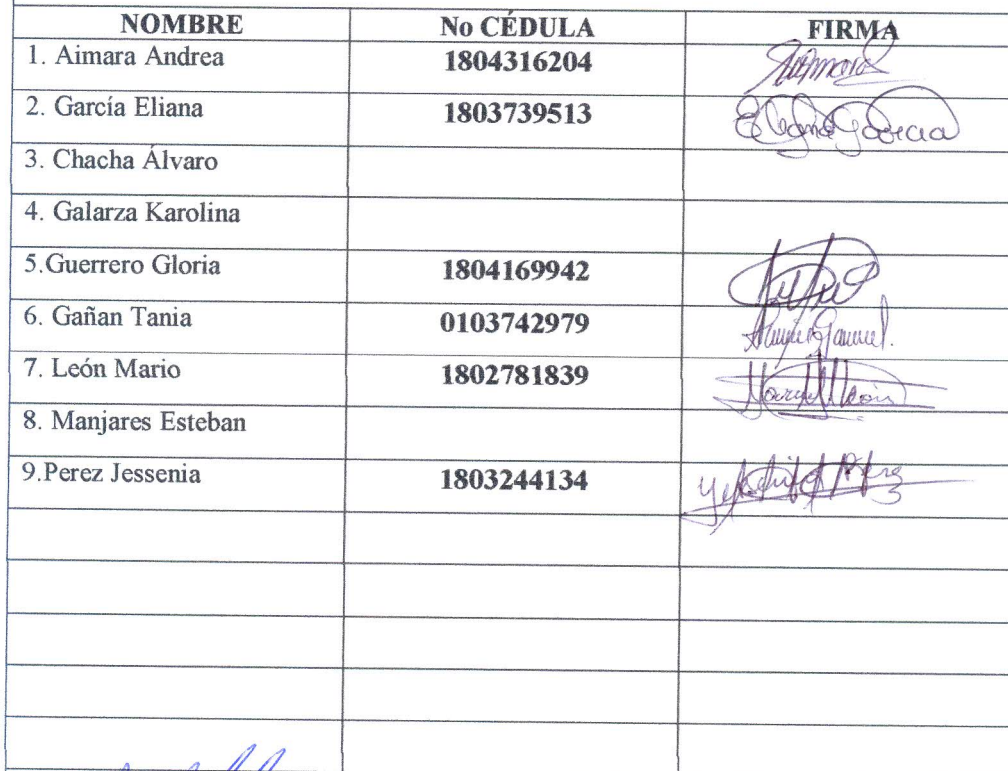 NOMBRE No CÉDULA FIRMA
1. Aimara Andrea 1804316204
2. García Eliana 1803739513 Eliana García
3. Chacha Álvaro
4. Galarza Karolina
5.Guerrero Gloria 1804169942
6. Gañan Tania 0103742979
7. León Mario 1802781839
8. Manjares Esteban
9.Perez Jessenia 1803244134